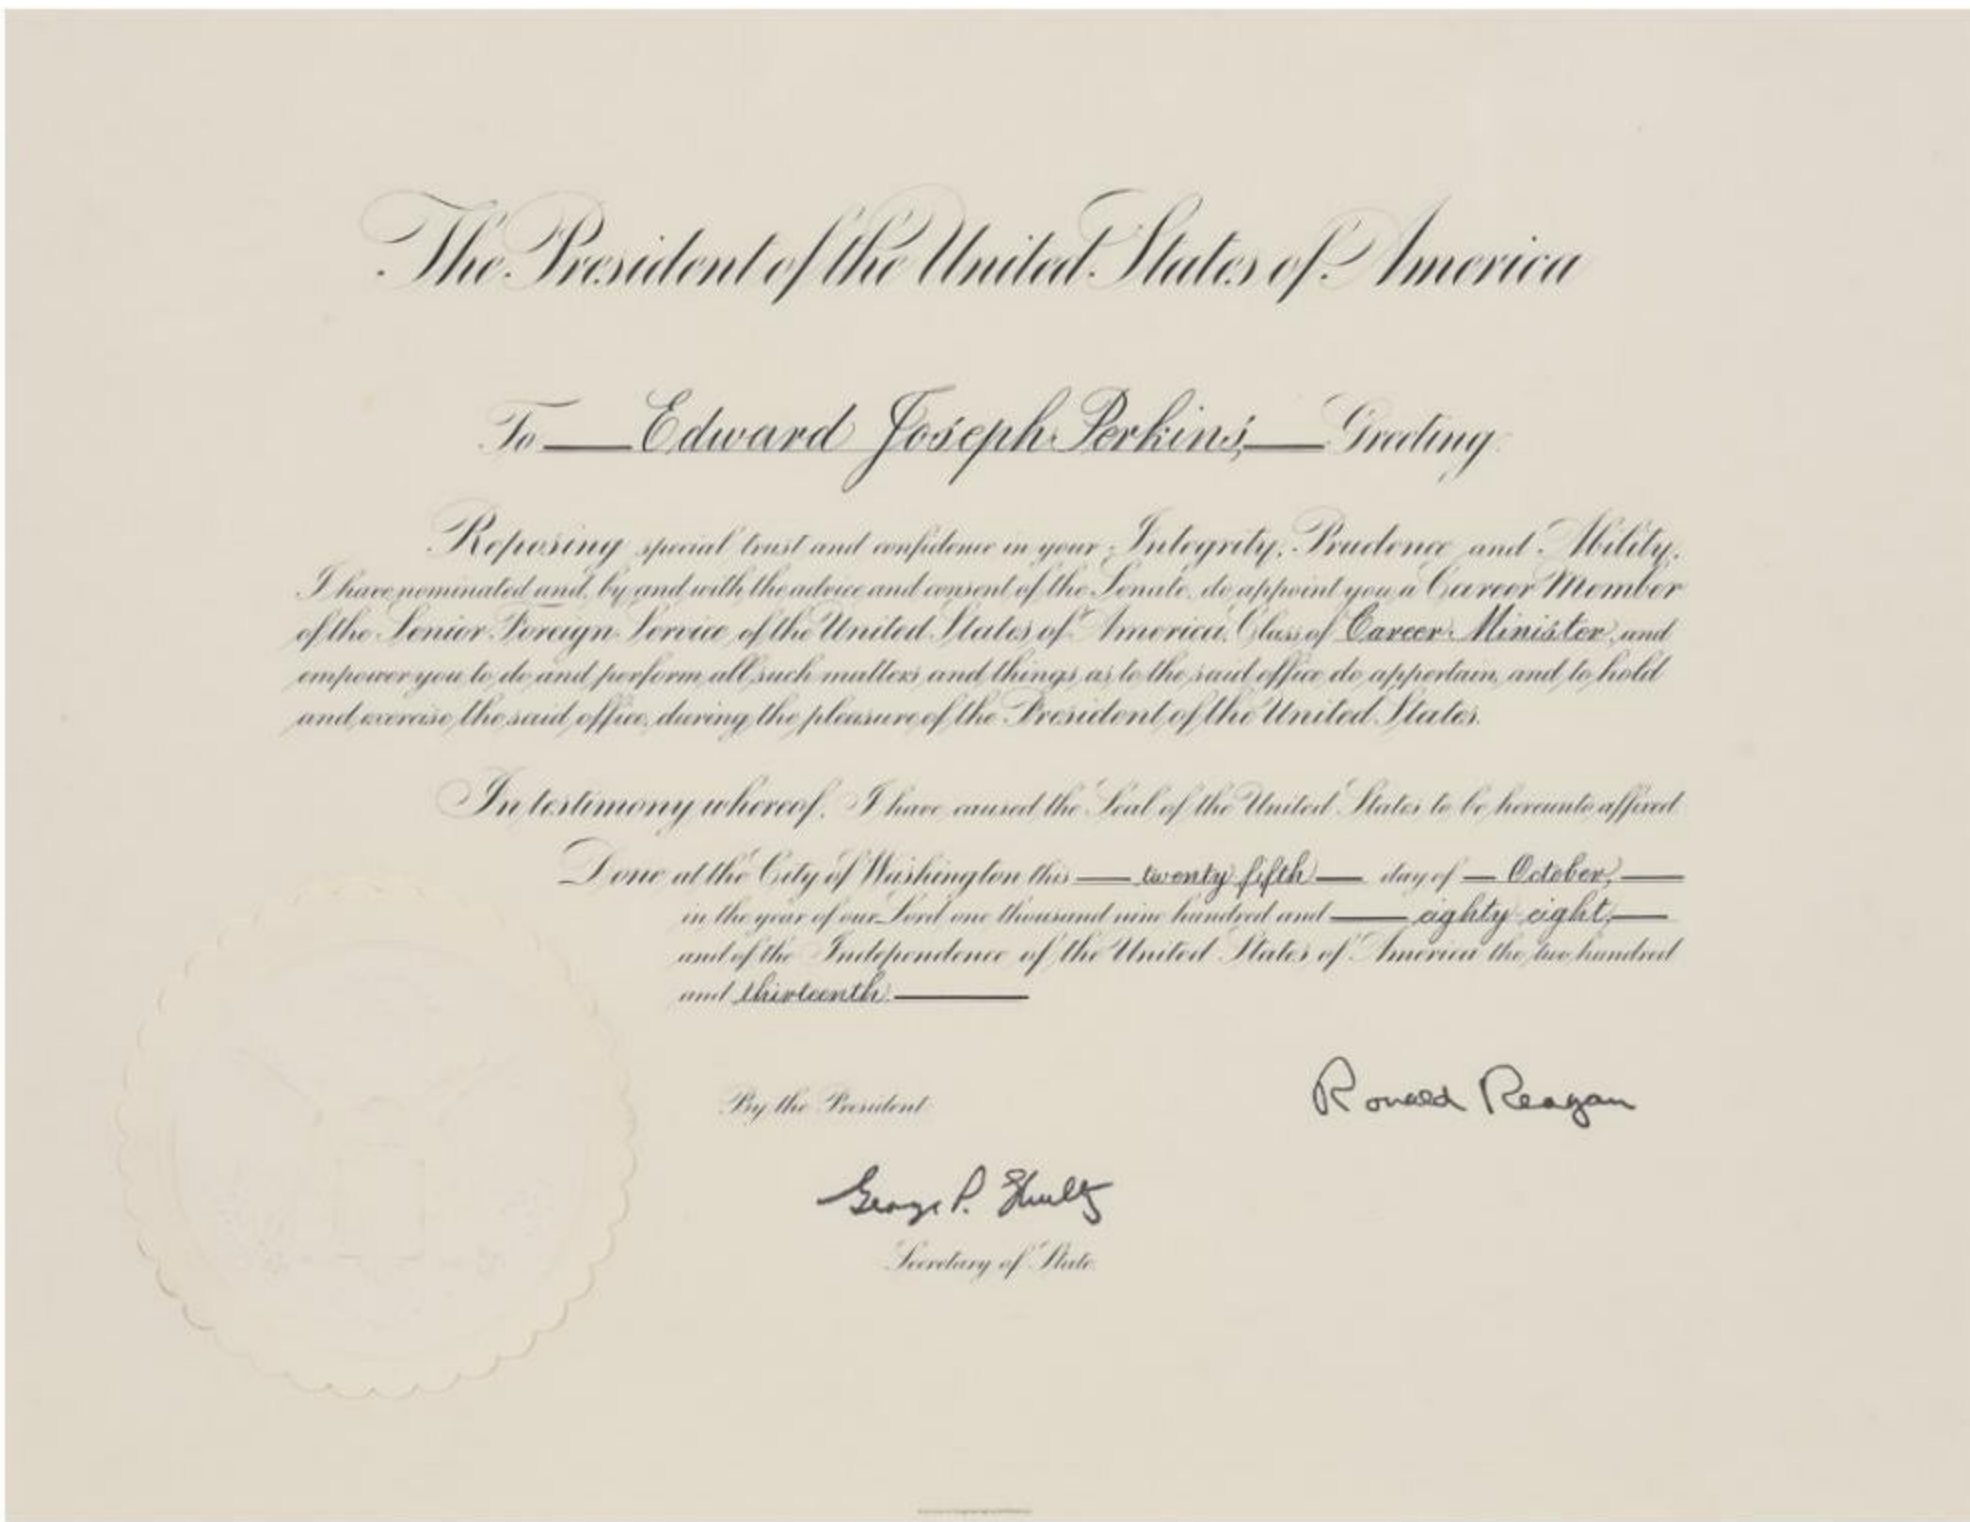 The President of the United States of America
To Edward Joseph Perkins, Greeting:
Reposing special trust and confidence in your Integrity, Prudence and Ability,
I have nominated and, by and with the advice and consent of the Senate, do appoint you a Career Member
of the Senior Foreign Service of the United States of America, Class of Career Minister, and
empower you to do and perform all such matters and things as to the said office do appertain, and to hold
and exercise the said office, during the pleasure of the President of the United States.
In testimony whereof, I have caused the Seal of the United States to be hereunto affixed
Done at the City of Washington this twenty fifth day of October,
in the year of our Lord one thousand nine hundred and eighty-eight,
and of the Independence of the United States of America the two hundred
and thirteenth.
Ronald Reagan
By the President:
George P. Shultz
Secretary of State.